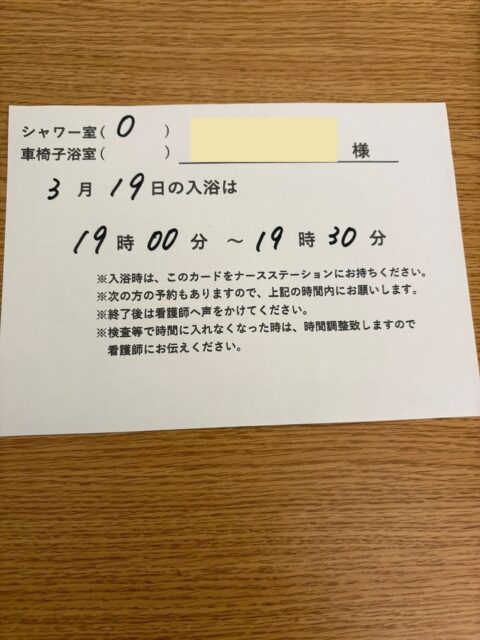 シャワー室( O )
車椅子浴室( ) 様
3 月 19日の入浴は
19 時 00 分 ～ 19 時 30 分
※入浴時は、このカードをナースステーションにお持ちください。
※次の方の予約もありますので、上記の時間内にお願いします。
※終了後は看護師へ声をかけてください。
※検査等で時間に入れなくなった時は、時間調整致しますので
看護師にお伝えください。